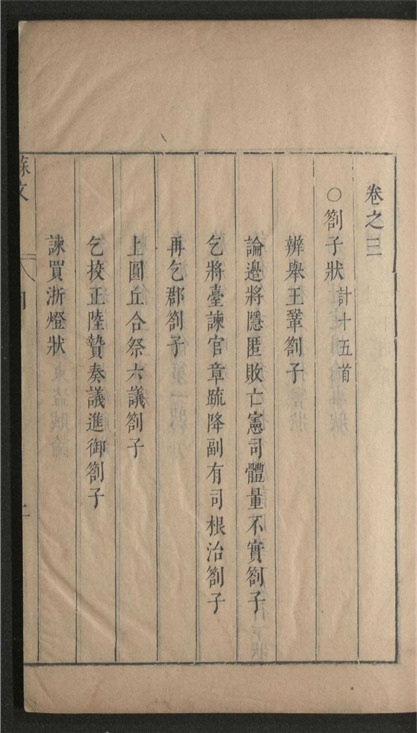 卷之三
○劄子狀計十五首
辨舉王鞏劄子
論邊將隱匿敗亡憲司體量不實劄子
乞將臺諫官章疏降副有司根治劄子
再乞郡劄子
上圓丘合祭六議劄子
乞挍正陸贄奏議進御劄子
諫買浙燈狀
蘇文